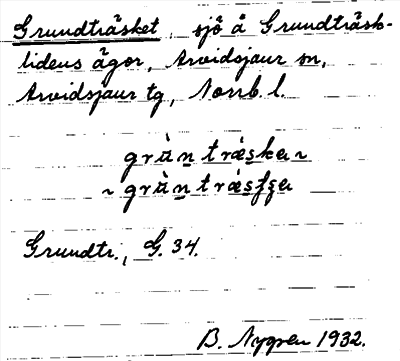 Grundträsket, sjö å Grundträsk-
lidens ägor, Arvidsjaur sn,
Arvidsjaur tg, Norrb. l.
grùn træ̀ska ~
~ grùn træ̀sʃʒa
Grundtr., G. 34.
B. Nygren 1932.